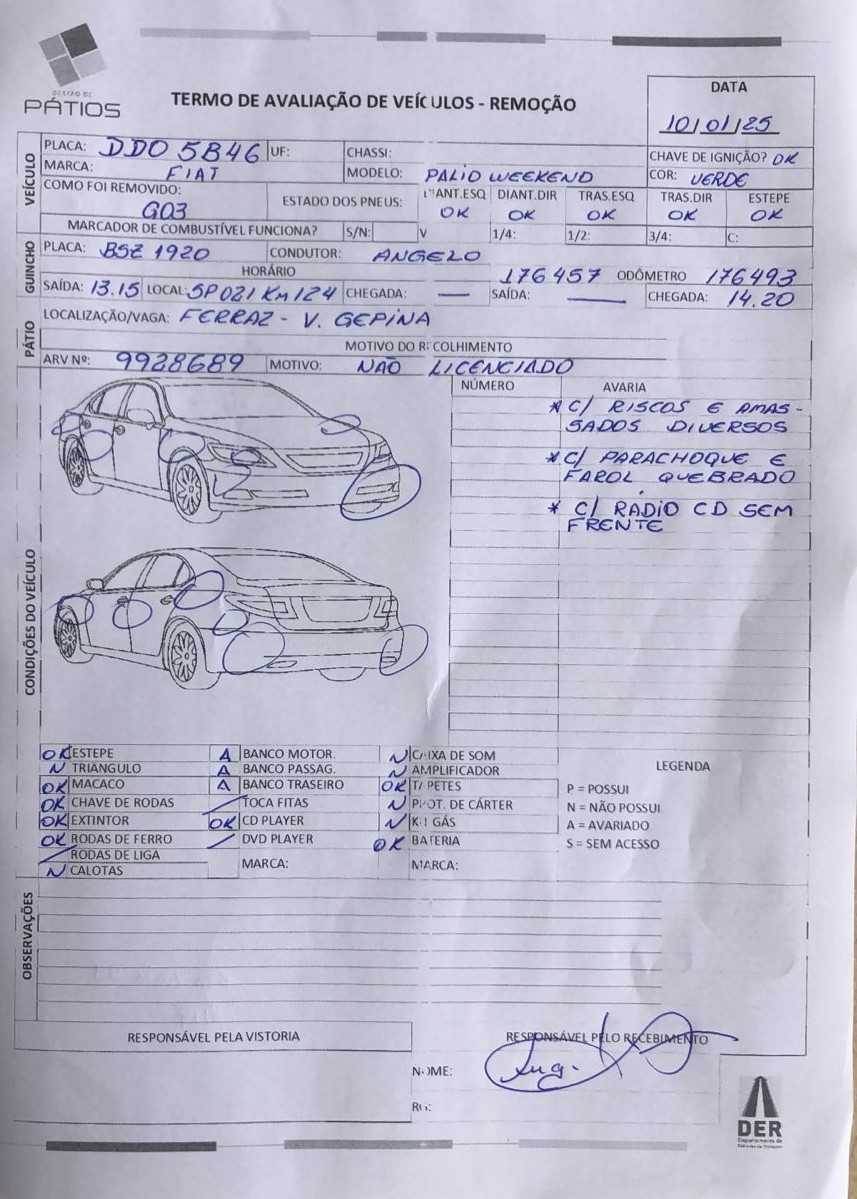 GESTÃO DE
PÁTIOS
TERMO DE AVALIAÇÃO DE VEÍCULOS - REMOÇÃO
DATA
10/01/25
VEÍCULO
PLACA: DDO 5B46 UF: CHASSI: CHAVE DE IGNIÇÃO? OK
MARCA: FIAT MODELO: PALIO WEEKEND COR: VERDE
COMO FOI REMOVIDO: G03 ESTADO DOS PNEUS: DIANT.ESQ OK DIANT.DIR OK TRAS.ESQ OK TRAS.DIR OK ESTEPE OK
MARCADOR DE COMBUSTÍVEL FUNCIONA? S/N: V 1/4: 1/2: 3/4: C:
GUINCHO
PLACA: BSZ 1920 CONDUTOR: ANGELO
HORÁRIO 176457 ODÔMETRO 176493
SAÍDA: 13.15 LOCAL: SP021 Km 124 CHEGADA: — SAÍDA: — CHEGADA: 14.20
PÁTIO
LOCALIZAÇÃO/VAGA: FERRAZ - V. GEPINA
MOTIVO DO RECOLHIMENTO
ARV Nº: 9928689 MOTIVO: NÃO LICENCIADO
CONDIÇÕES DO VEÍCULO
NÚMERO AVARIA
* C/ RISCOS E AMAS-
SADOS DIVERSOS
* C/ PARACHOQUE E
FAROL QUEBRADO
* C/ RADIO CD SEM
FRENTE
OK ESTEPE A BANCO MOTOR. N CAIXA DE SOM
N TRIANGULO A BANCO PASSAG. N AMPLIFICADOR
OK MACACO A BANCO TRASEIRO OK TAPETES
OK CHAVE DE RODAS / TOCA FITAS N PROT. DE CÁRTER
OK EXTINTOR OK CD PLAYER N KIT GÁS
OK RODAS DE FERRO / DVD PLAYER OK BATERIA
/ RODAS DE LIGA MARCA: MARCA:
N CALOTAS
LEGENDA
P = POSSUI
N = NÃO POSSUI
A = AVARIADO
S = SEM ACESSO
OBSERVAÇÕES
RESPONSÁVEL PELA VISTORIA RESPONSÁVEL PELO RECEBIMENTO
NOME:
RG:
DER